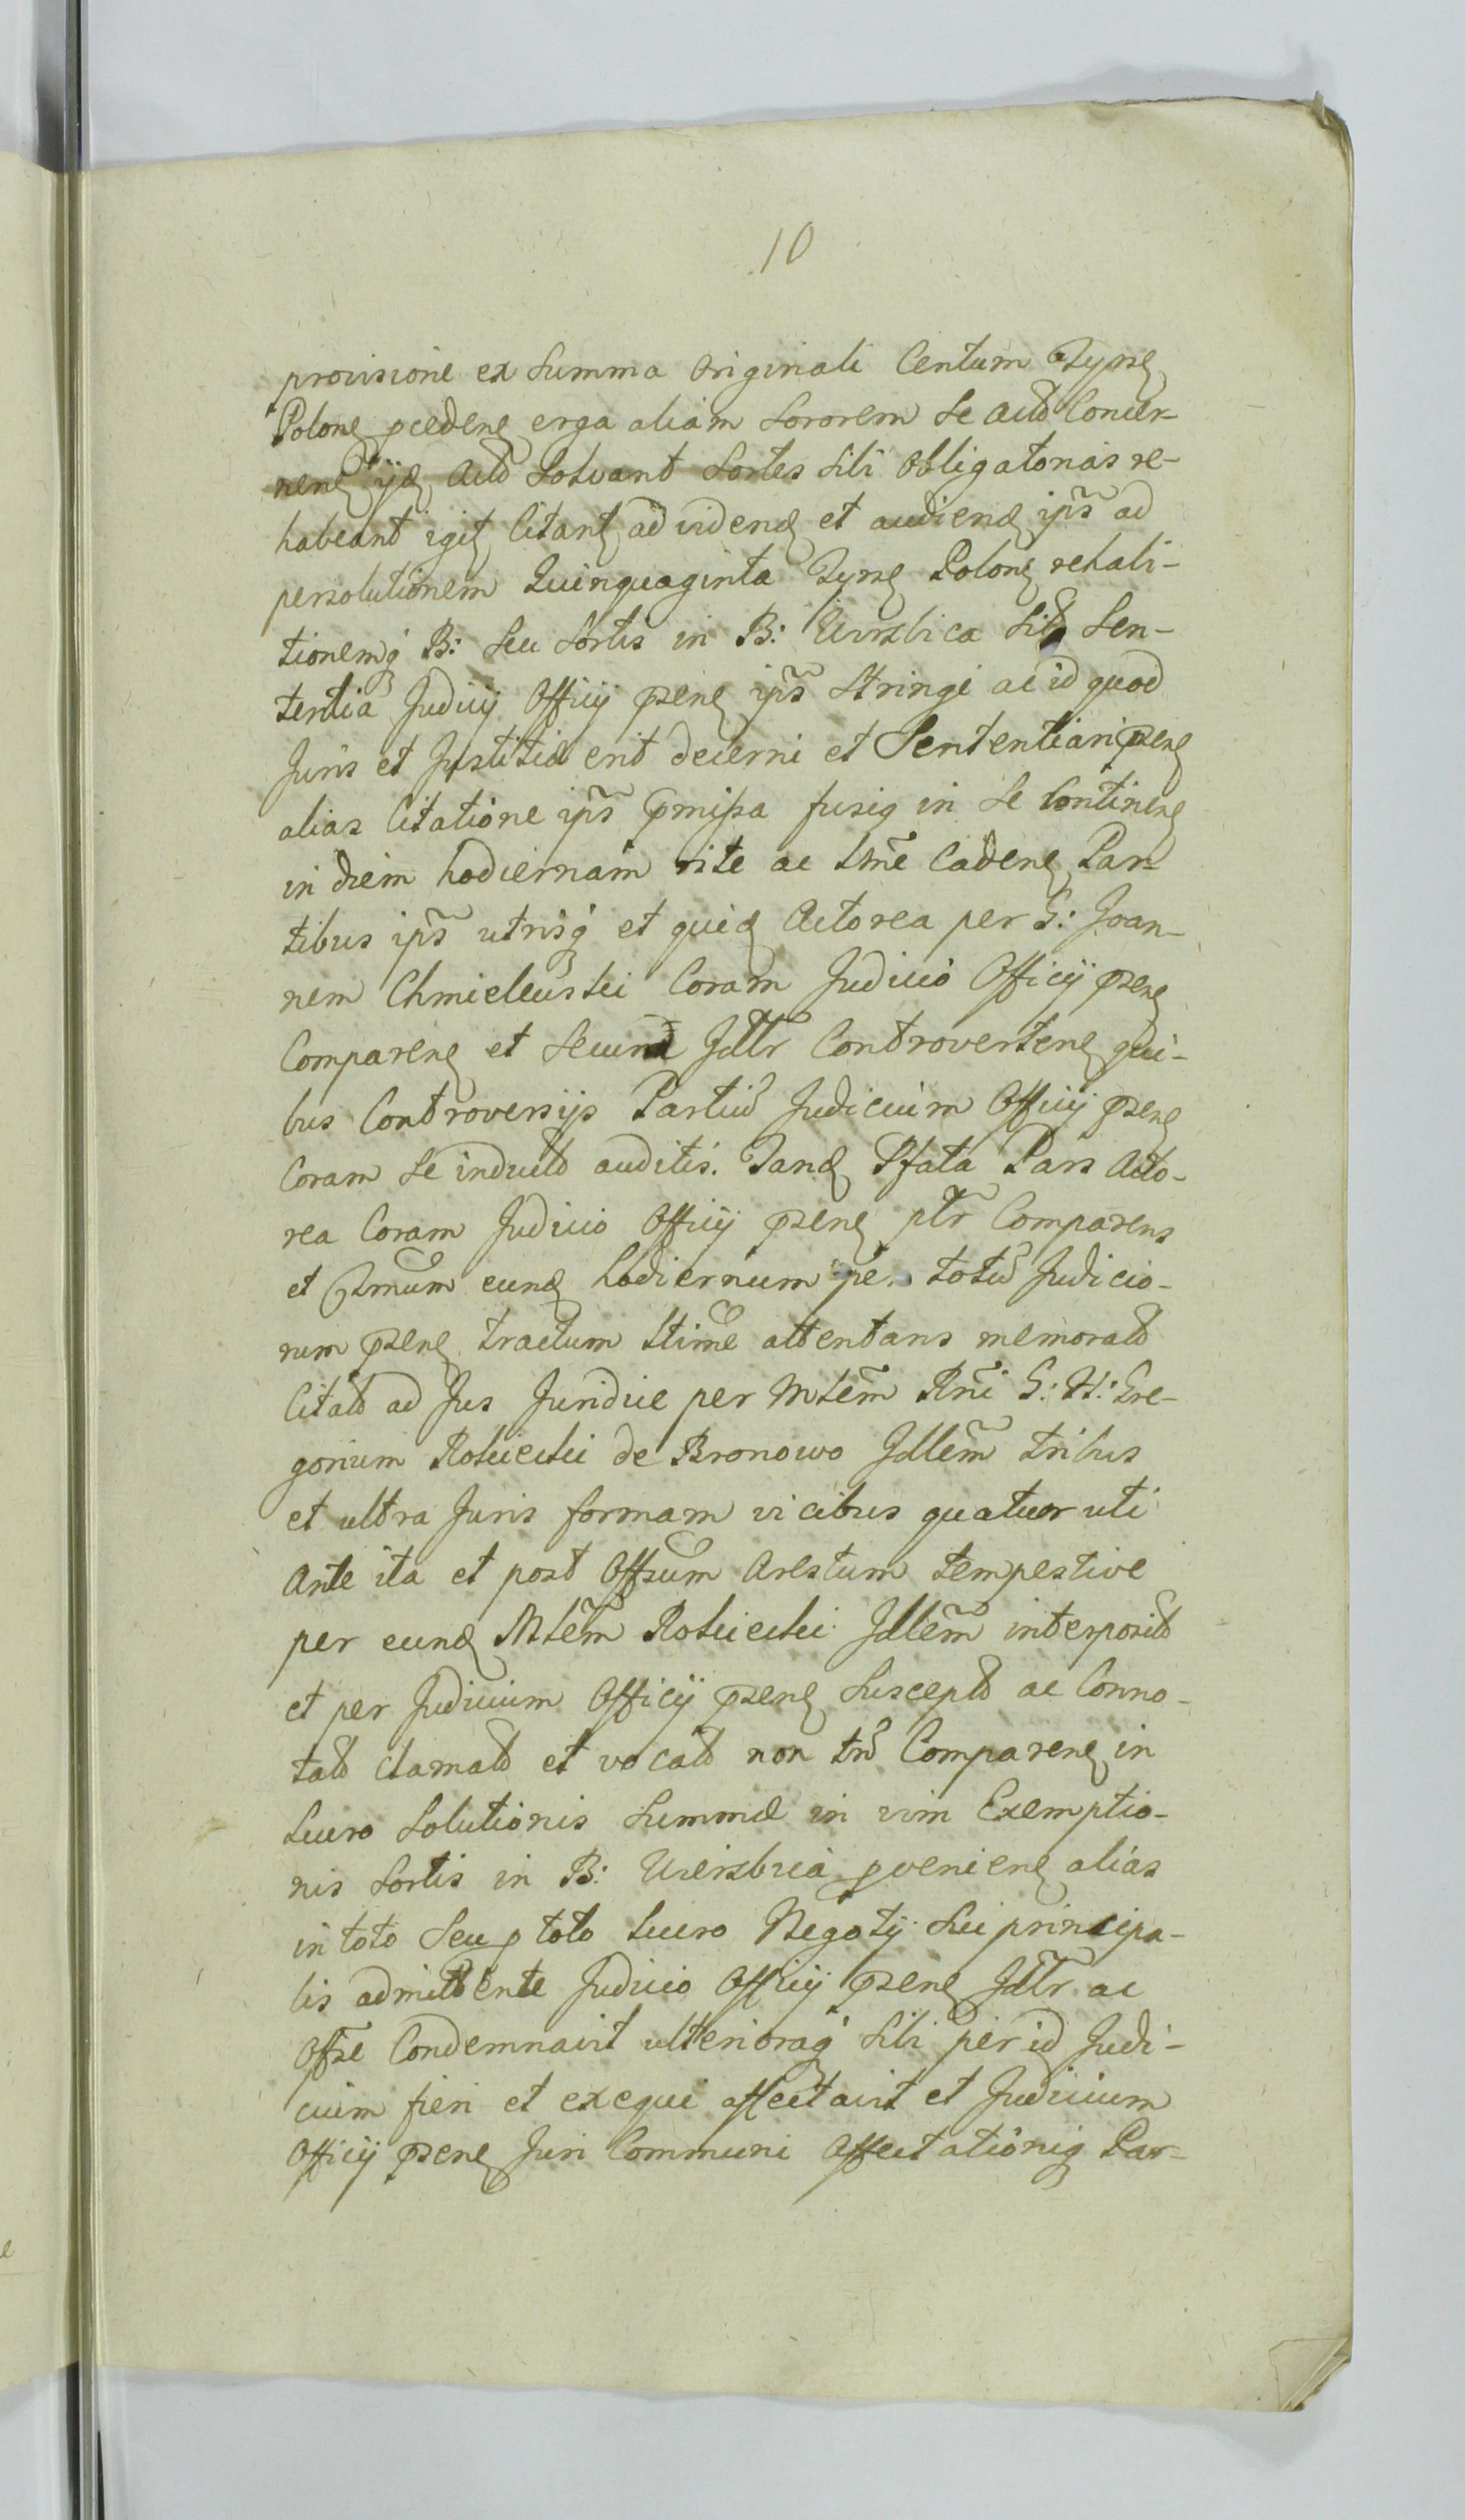 10
provisione ex Summa Originali Centum Tymf
Polon pcedene erga aliam Sororem Se Actô Concer-
nene ijd Actô Solvant Sortes Sibi Obligatorias re-
habeant igit Citant ad videnđ et audienđ ips ad
persolutionem Quinquaginta Tymf Polon rehabi-
tionemq B: Seu Sortis in B: Uwisbica Sitô Sen-
tentia Judicij Officij psene ips Stringi ac id quod
Juris et Justitiæ erit decerni et Sententiari psene
alias Citatione ips pmissa fusiq in Se Continene
in diem hodiernam rite ac ltme Cadene Par-
tibus ips utrisq et quid Actorea per G: Joan-
nem Chmielewski Coram Judicio Officij psene
Comparene et Secund Jdltr Controvertene qui-
bus Controversijs Partiũ Judicium Officij psene
Coram Se inductô auditis. Tand Pfata Pars Acto-
rea Coram Judicio Officij psene pltr Comparens
et Tmum eund hodiernum per totũ Judicio-
rum psene tractum ltime attentans memoratô
Citatô ad Jus Juridice per Mtem Rni G: N: Gre-
gorium Rokicki de Bronowo Jdlem tribus
et ultra Juris formam vicibus quatuor uti
Ante ita et post Offsum Arestum tempestive
per eund Mtem Rokicki Jdlem interpositô
et per Judicium Officij psene Susceptô ac Conno-
tatô clamatô et vocatô non tnũ Comparene in
lucro Solutionis Summæ in vim Exemptio-
nis Sortis in B: Uwisbica pveniene alias
in toto Seu p toto lucro Negotij Sui principa-
lis admittente Judicio Officij psene Jdltr ac
Offse Condemnavit ulterioraq Sibi per id Judi-
cium fieri et exequi affectavit et Judicium
Officij psene Juri Communi Affectationiq Par-